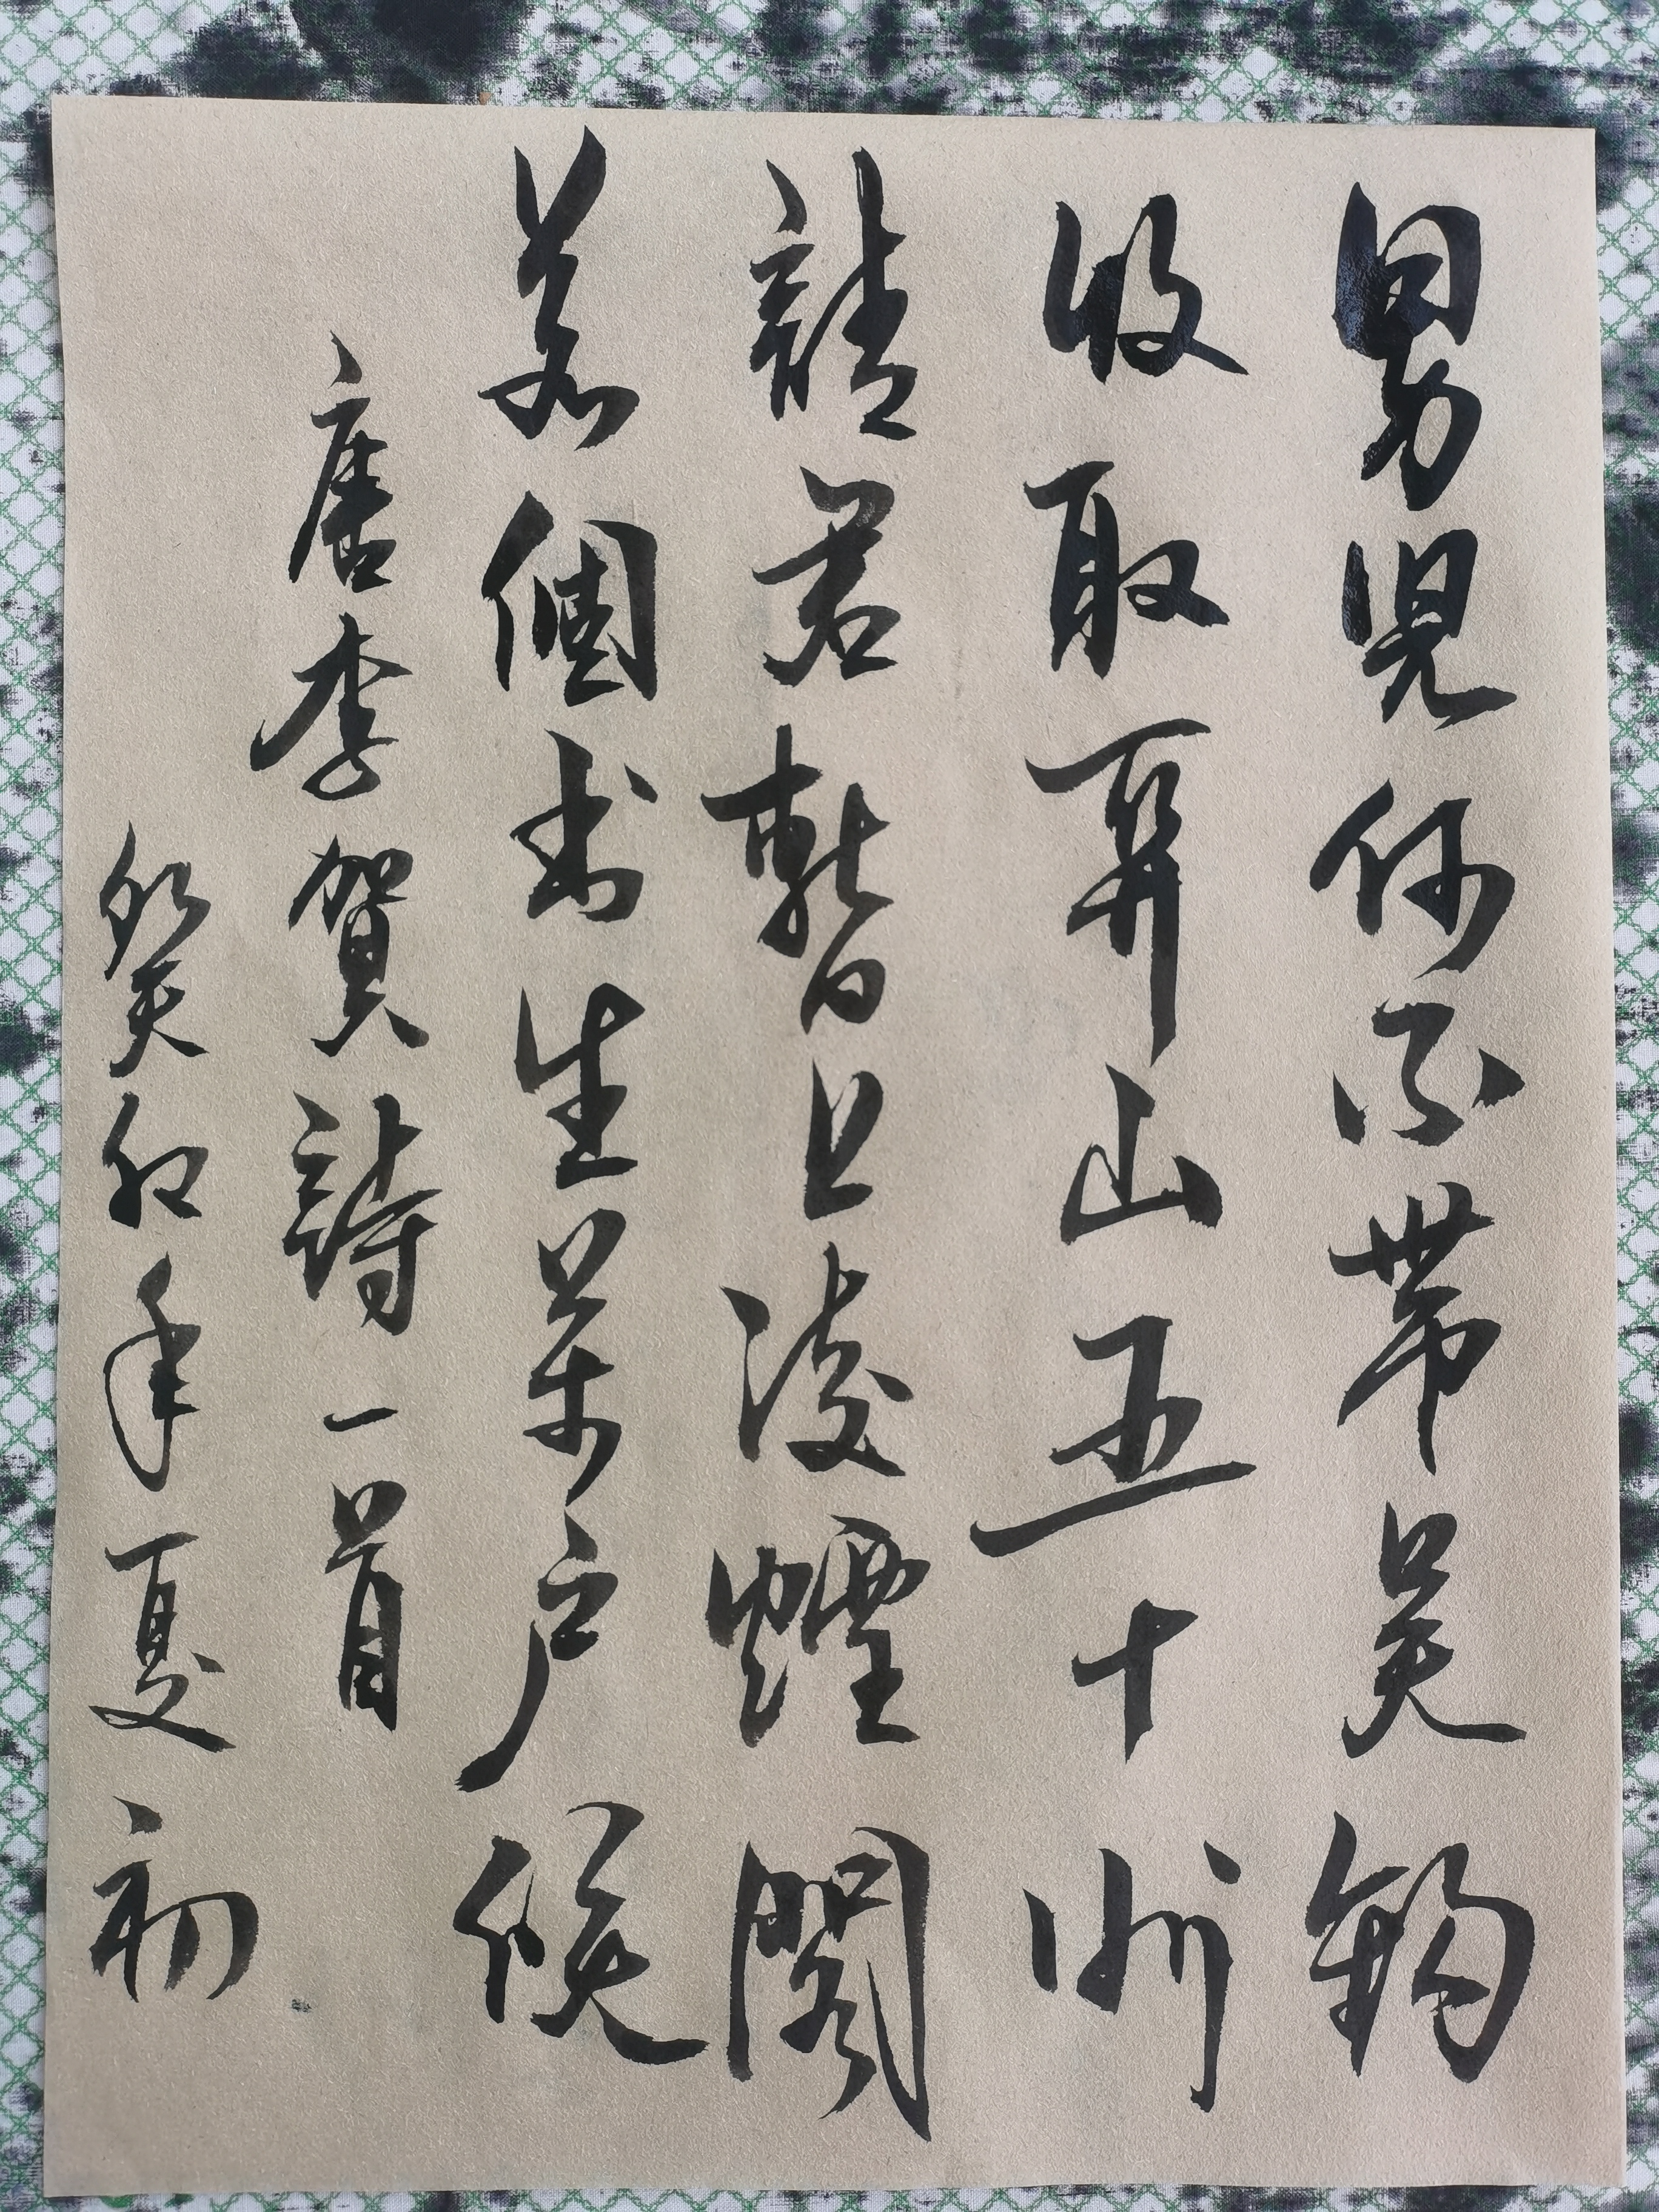 男兒何不帶吳鈎
收取關山五十州
請君暫上凌煙閣
若個書生萬戶侯
唐李賀詩一首
癸卯年夏初